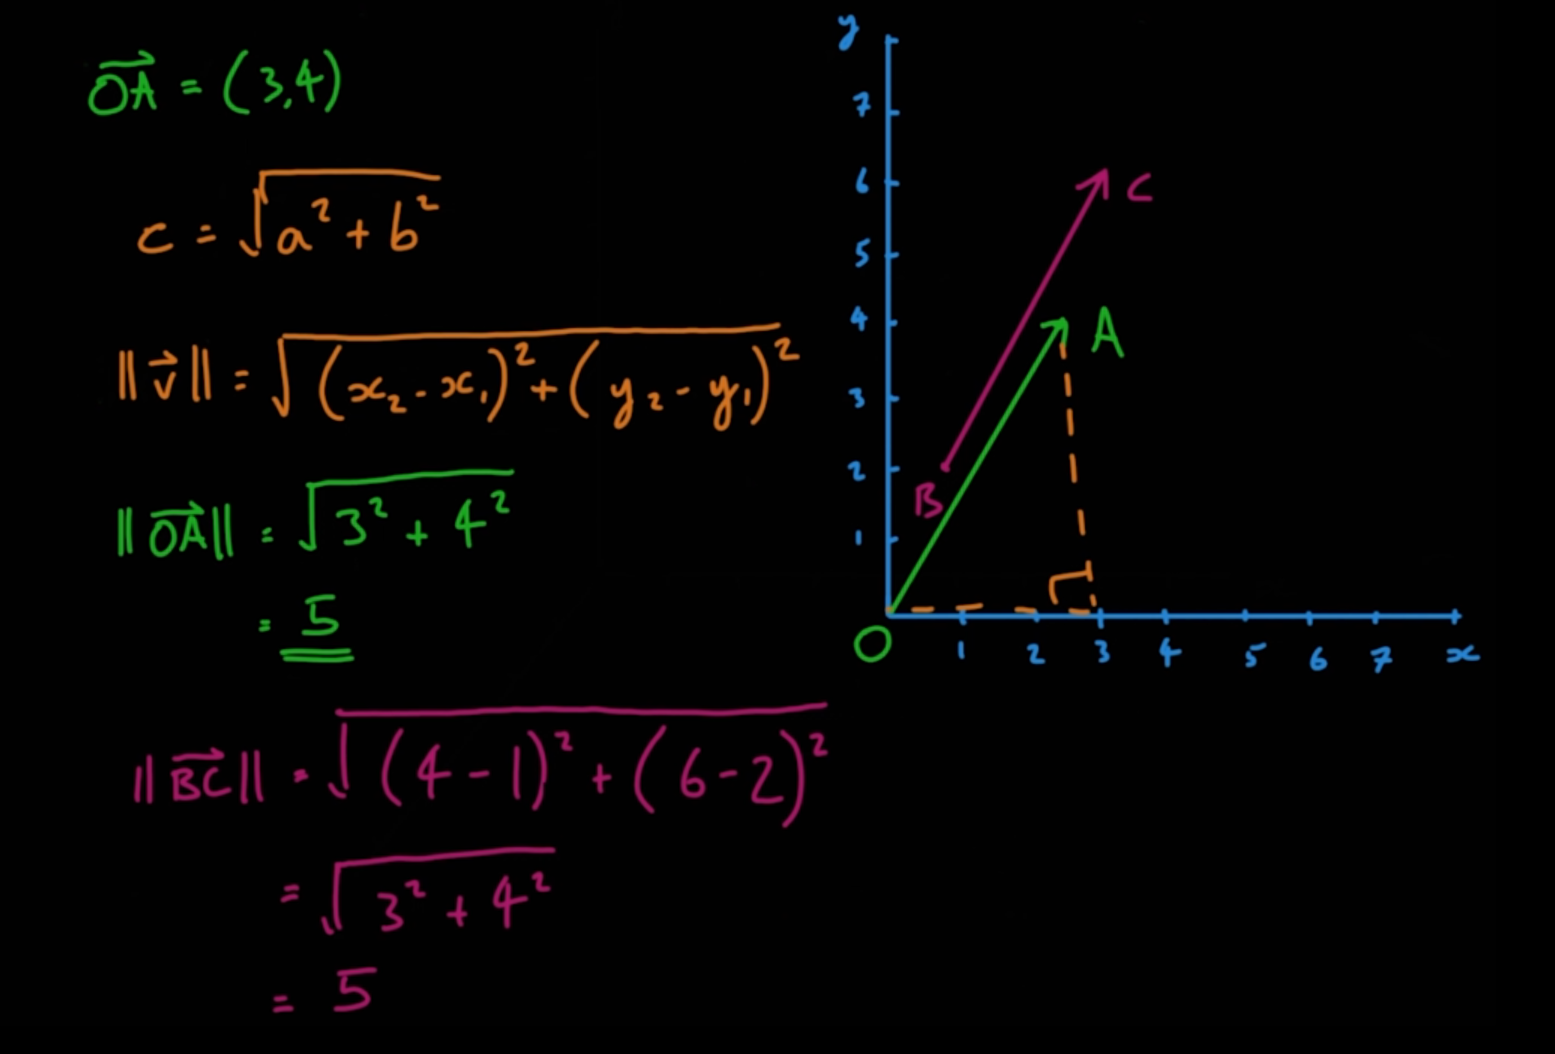 OA⃗ = (3,4)
c = √(a² + b²)
‖v⃗‖ = √((x₂ - x₁)² + (y₂ - y₁)²)
‖OA⃗‖ = √(3² + 4²)
= 5
‖BC⃗‖ = √((4 - 1)² + (6 - 2)²)
= √(3² + 4²)
= 5
y
7
6
5
4
3
2
1
C
A
B
O
1 2 3 4 5 6 7 x